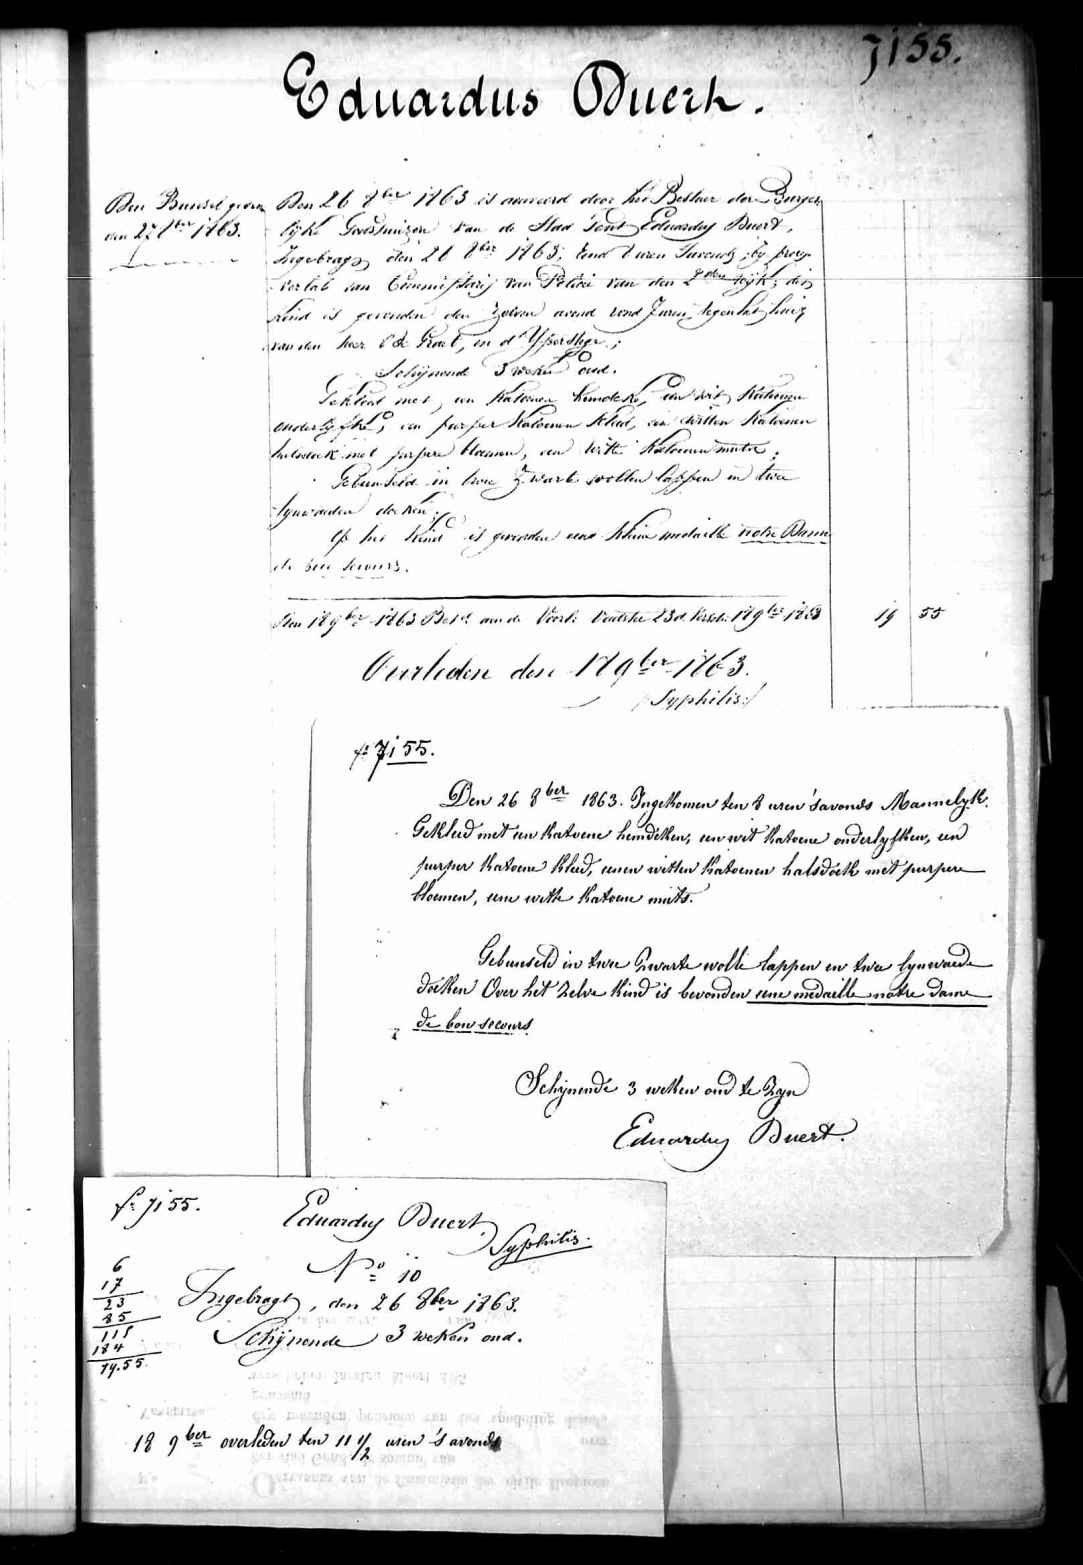 7155.
Eduardus Duert.
Den Bunsel
den 27 8ber 1863.
Den 26 8ber 1863 is aanveerd door het Bestier der Burger
lyke Godshuizen van de Stad Gent Eduardus Duert,
Ingebragt den 26 8ber 1863, tend 8 uren 's avonds, by proces
verbal van Commissaris van Politie van den 2den wijk; dit
kind is gevonden den zelven avond rond 7 uren, tegen het huis
van den heer
Schijnende 3 weken oud.
Gekleed met, een katoenen hemdeke, een wit katoenen
onderlyfke, een purper katoenen kleed, een witten katoenen
halsdoek met purpere bloemen, een witte katoenen muts.
Gebunseld in twee zwarte wollen lappen en twee
lynwaeden doeken.
Op het kind is gevonden eene kleine medaille notre Dame
de bon secours.
Den 18 9ber 1863 Bet. aan de 18 9ber 1863 19 55
Overleden den 18 9ber 1863.
Syphilis.
fo 7155.
Den 26 8ber 1863. Ingekomen ten 8 uren 's avonds Mannelyk.
Gekleed met een katoene hemdeken, een wit katoene onderlyfken, een
purper katoene kleed, eenen witten katoenen halsdoek met purpere
bloemen, eene witte katoene muts.
Gebunseld in twee zwarte wolle lappen en twee lynwaede
doeken Over het zelve kind is bevonden eene medaille notre dame
de bon secours
Schijnende 3 weken oud te zyn
Eduardus Duert.
fo 7155.
Eduardus Duert
Syphilis.
No 10
6
17
23
85
115
184
19.55
Ingebragt, den 26 8ber 1863.
Schijnende 3 weken oud.
18 9ber overleden ten 11 1/2 uren 's avonds